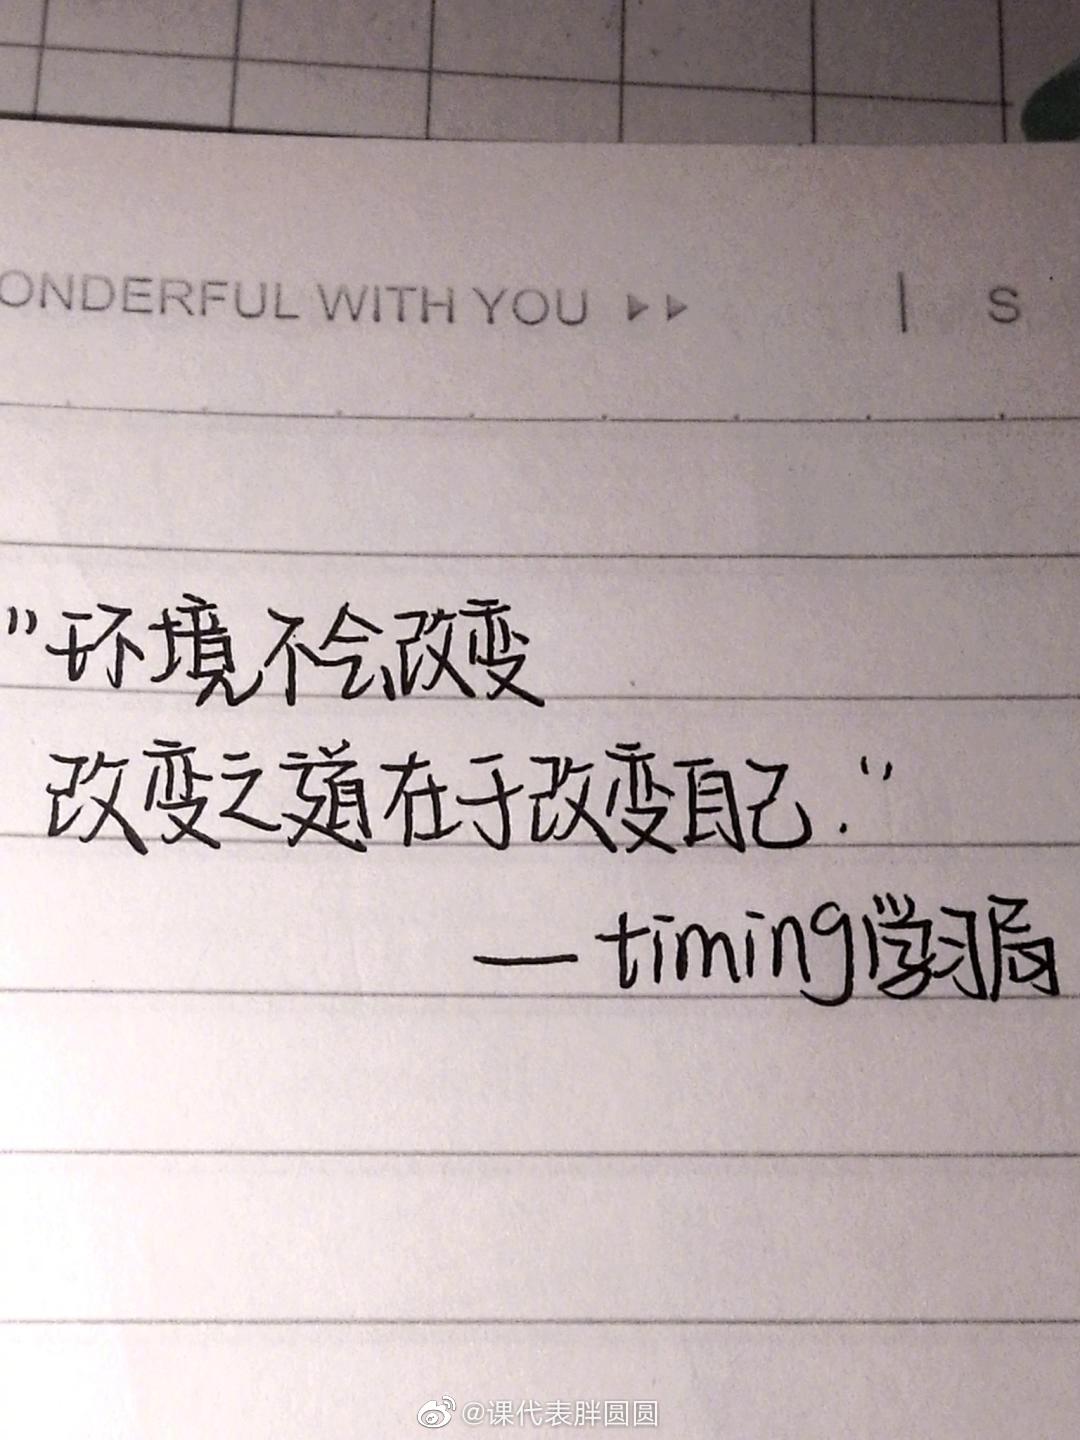 ONDERFUL WITH YOU ▶▶ | S
"环境不会改变
改变之道在于改变自己."
—timing学习局
@课代表胖圆圆